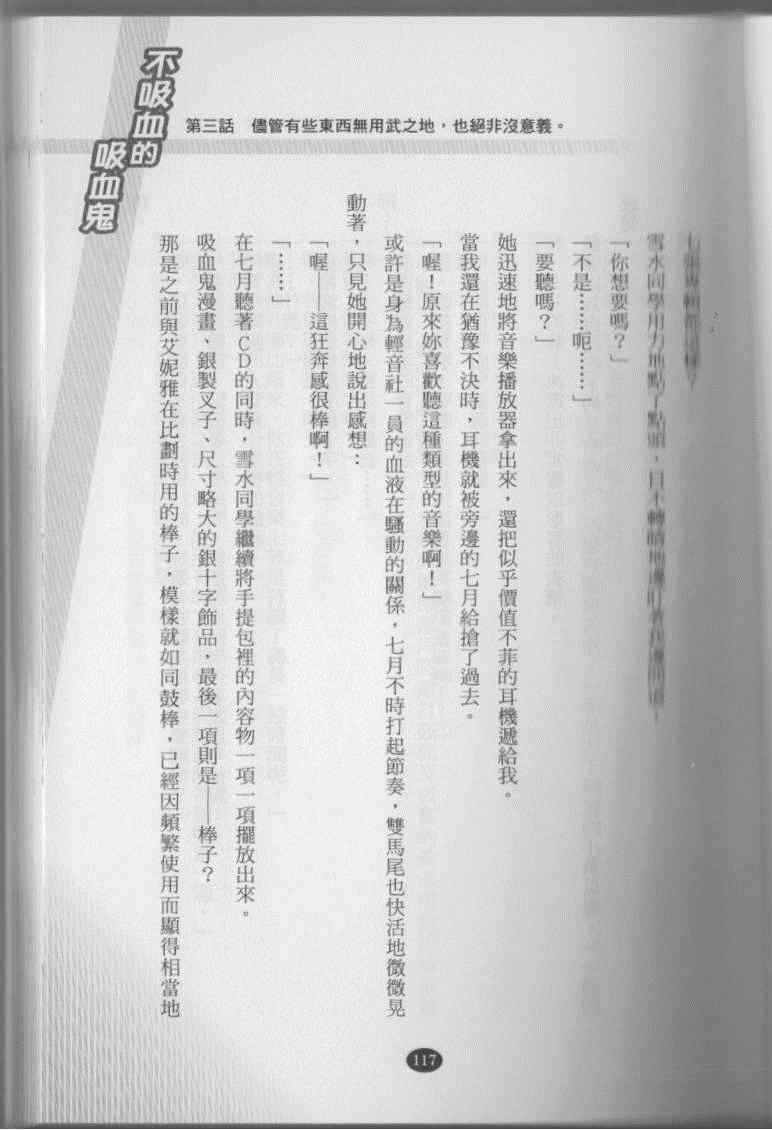 不吸血的
吸血鬼
第三話　儘管有些東西無用武之地，也絕非沒意義。
雪水同學用力地點了點頭，目不轉睛地
「你想要嗎？」
「不是……呃……」
「要聽嗎？」
她迅速地將音樂播放器拿出來，還把似乎價值不菲的耳機遞給我。
當我還在猶豫不決時，耳機就被旁邊的七月給搶了過去。
「喔！原來妳喜歡聽這種類型的音樂啊！」
或許是身為輕音社一員的血液在騷動的關係，七月不時打起節奏，雙馬尾也快活地微微晃
動著，只見她開心地說出感想：
「喔——這狂奔感很棒啊！」
「……」
在七月聽著CD的同時，雪水同學繼續將手提包裡的內容物一項一項擺放出來。
吸血鬼漫畫、銀製叉子、尺寸略大的銀十字飾品，最後一項則是——棒子？
那是之前與艾妮雅在比劃時用的棒子，模樣就如同鼓棒，已經因頻繁使用而顯得相當地
117